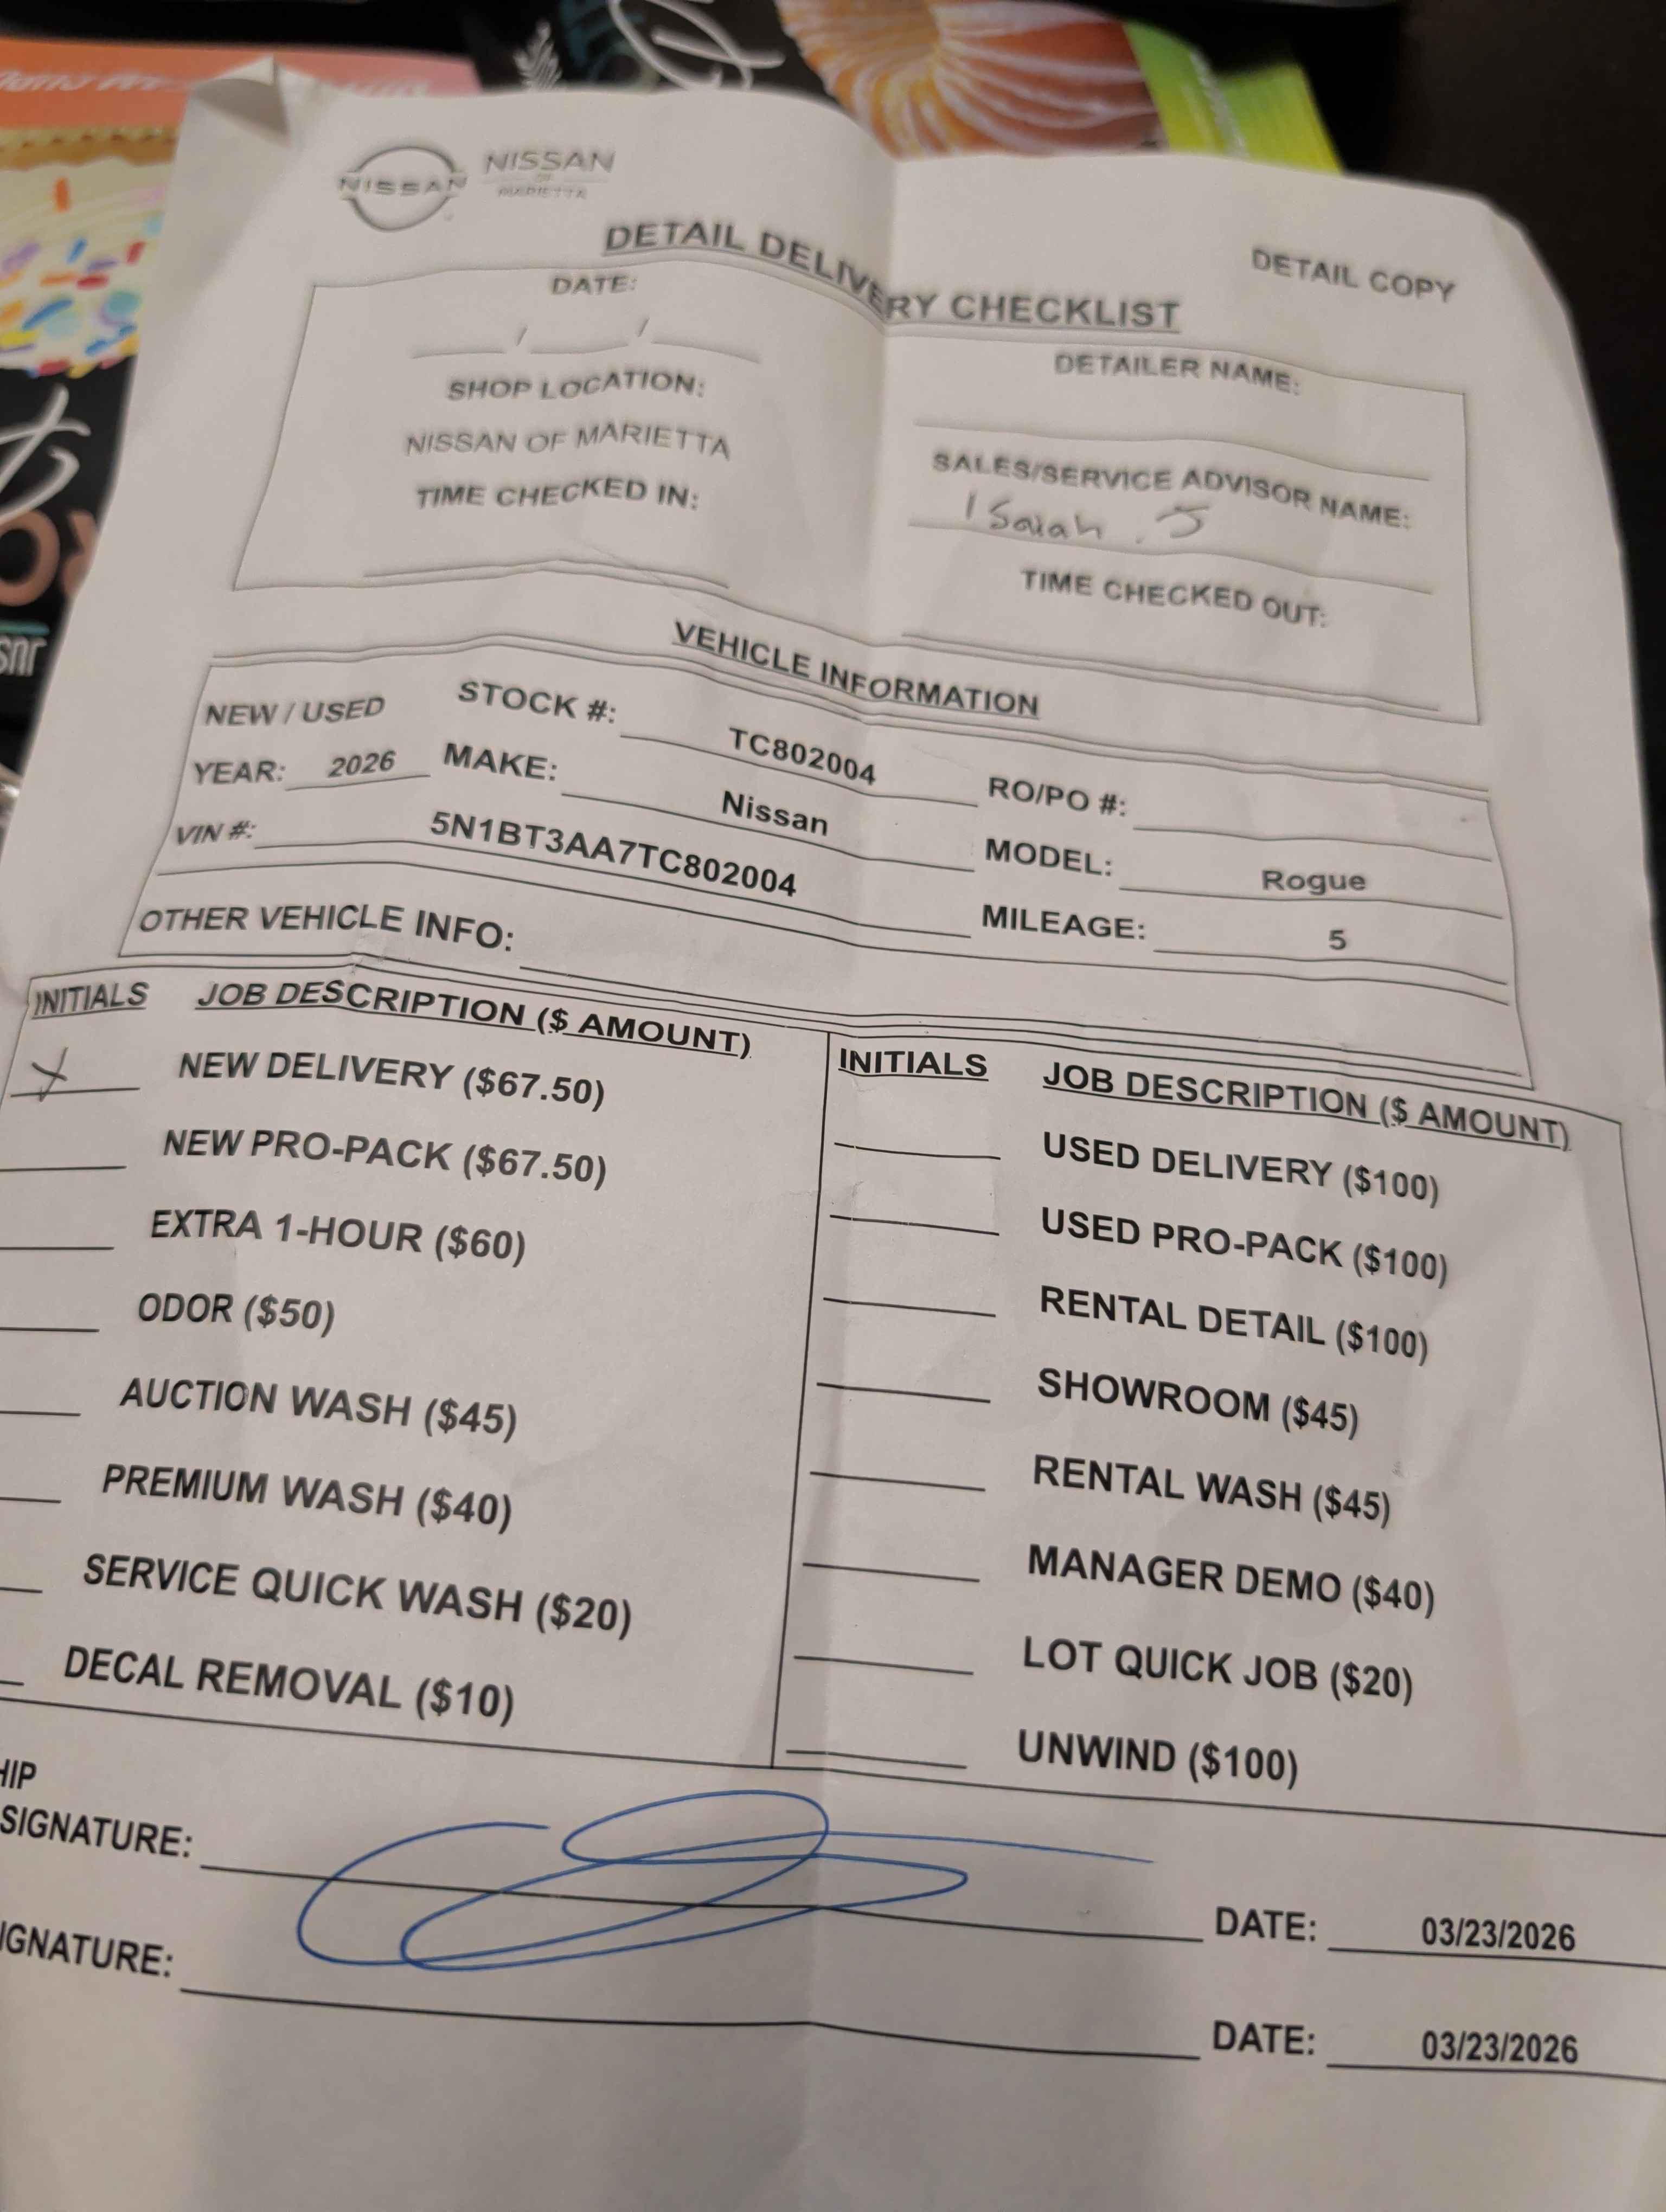 NISSAN
NISSAN
OF
MARIETTA
DETAIL DELIVERY CHECKLIST
DETAIL COPY
DATE:
/ /
SHOP LOCATION:
NISSAN OF MARIETTA
TIME CHECKED IN:
DETAILER NAME:
SALES/SERVICE ADVISOR NAME:
Isaiah . J
TIME CHECKED OUT:
VEHICLE INFORMATION
NEW / USED STOCK #: TC802004 RO/PO #:
YEAR: 2026 MAKE: Nissan MODEL: Rogue
VIN #: 5N1BT3AA7TC802004 MILEAGE: 5
OTHER VEHICLE INFO:
INITIALS JOB DESCRIPTION ($ AMOUNT)
X NEW DELIVERY ($67.50)
NEW PRO-PACK ($67.50)
EXTRA 1-HOUR ($60)
ODOR ($50)
AUCTION WASH ($45)
PREMIUM WASH ($40)
SERVICE QUICK WASH ($20)
DECAL REMOVAL ($10)
INITIALS JOB DESCRIPTION ($ AMOUNT)
USED DELIVERY ($100)
USED PRO-PACK ($100)
RENTAL DETAIL ($100)
SHOWROOM ($45)
RENTAL WASH ($45)
MANAGER DEMO ($40)
LOT QUICK JOB ($20)
UNWIND ($100)
HIP
SIGNATURE: DATE: 03/23/2026
IGNATURE: DATE: 03/23/2026